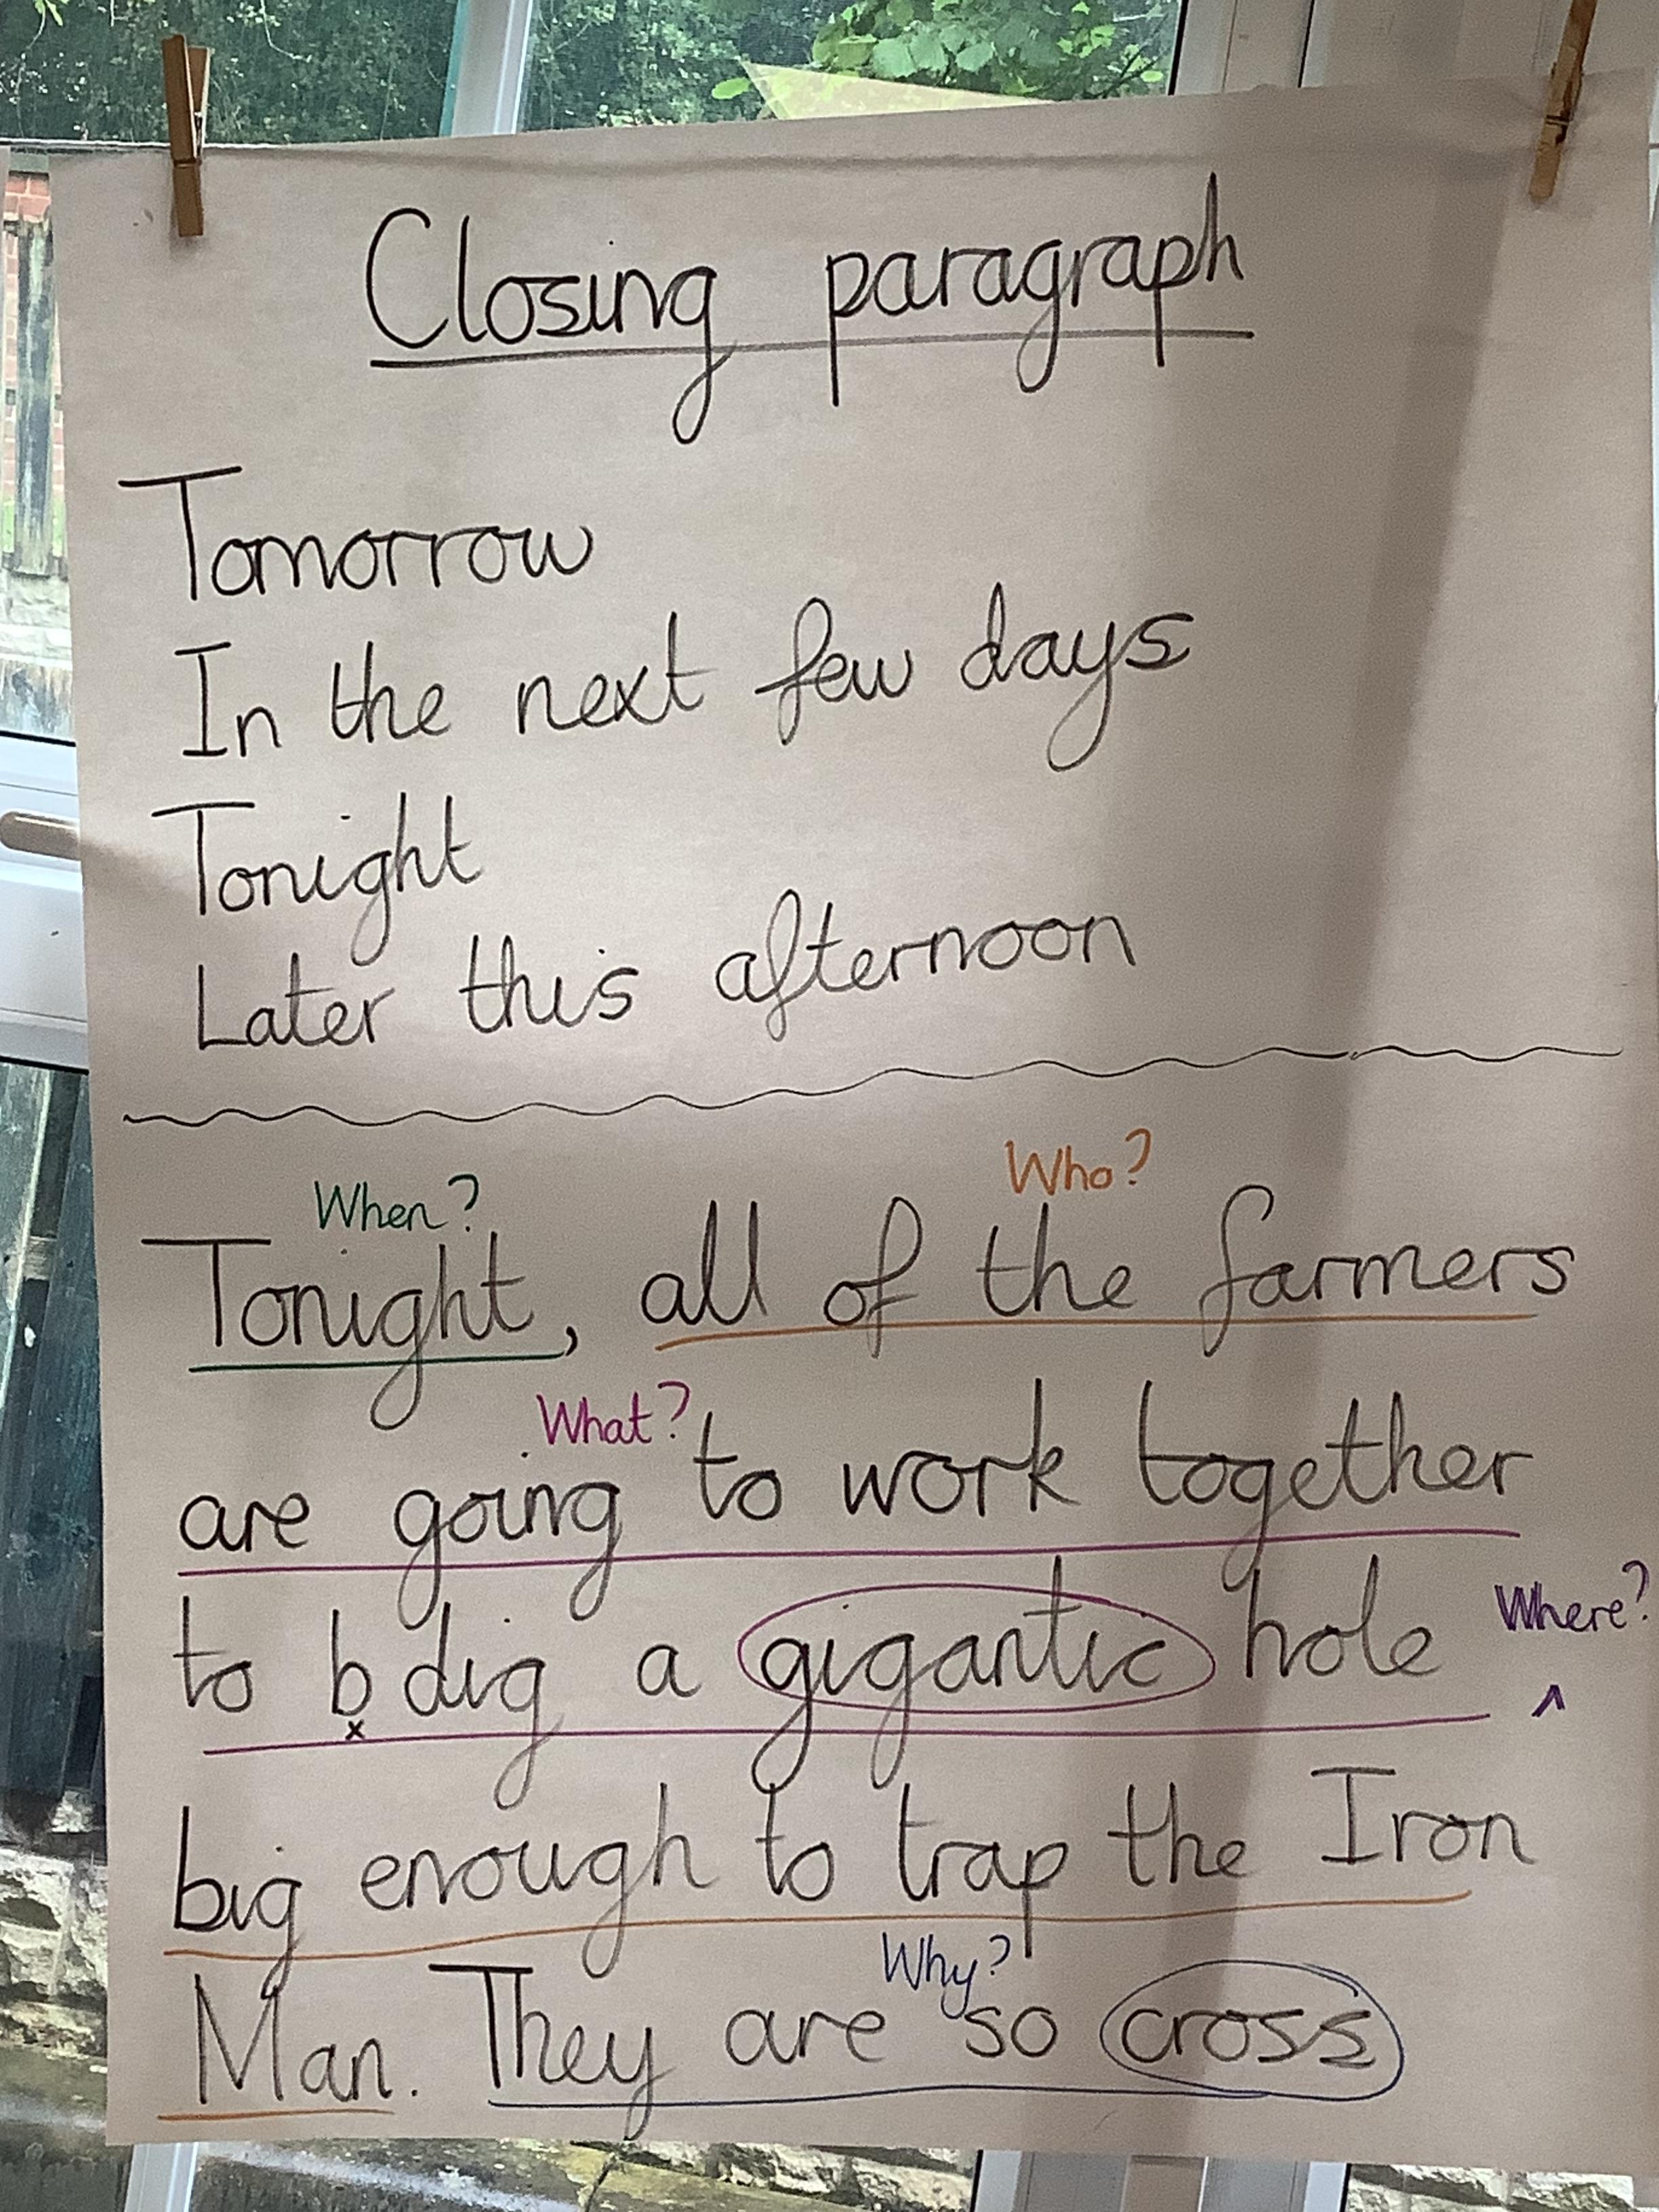 Closing paragraph
Tomorrow
In the next few days
Tonight
Later this afternoon
When? Who?
Tonight, all of the farmers
What?
are going to work together
Where?
to b dig a gigantic hole ^
big enough to trap the Iron
Why?
Man. They are so cross